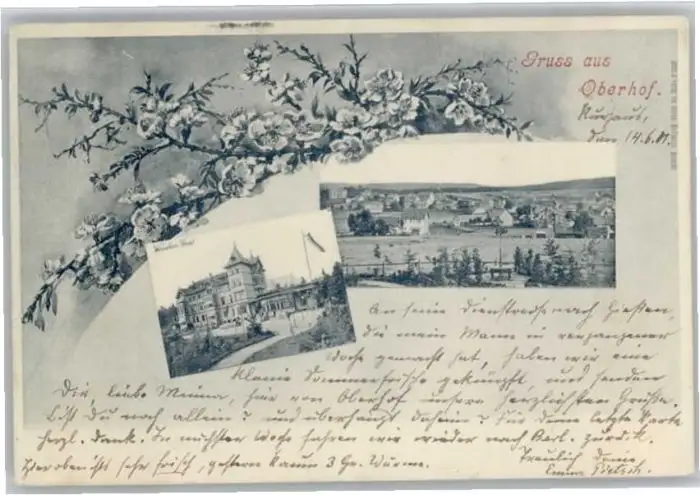 Gruss aus
Oberhof.
Kurhaus,
den 14.6.01.
An seine Dienstreise nach
die mein Mann in vergangener
Woche gemacht hat, haben wir eine
kleine Sommerfrische geknüpft, und senden
Dir, liebe Minna, hier von Oberhof unsere herzlichsten Grüße.
Bist Du noch allein? und überhaupt daheim? Für Deine letzte Karte
herzl. Dank. In nächster Woche fahren wir wieder nach Berl. zurück.
Hier oben ists sehr frisch, gestern kaum 3 Gr. Wärme.
Treulich Deine
Emma